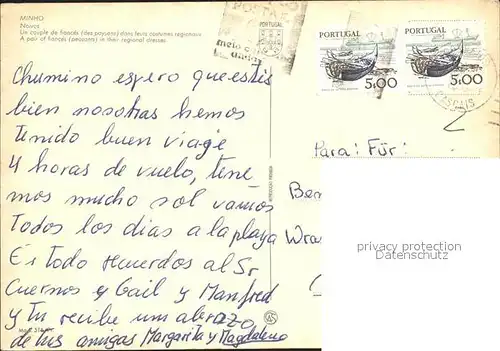 MINHO
Noivos
Un couple de fiancés (des paysans) dans leurs costumes regionaux
A pair of fiancés (peasants) in their regional dresses
PORTUGAL
PORTUGAL
PORTUGAL
5$00
5$00
CASCAIS
Chumino espero que estis
bien nosotras hemos
tenido buen viage
4 horas de vuelo, tene
mos mucho sol vamos
Todos los dias a la playa
Es Todo recuerdos al Sr
Cuernos y Gail y Manfred
y tu recibe un abrazo
de tus amigas Margarita y Magdalena
Para: Für:
Ber
Wra
privacy protection
VDMedien24.de